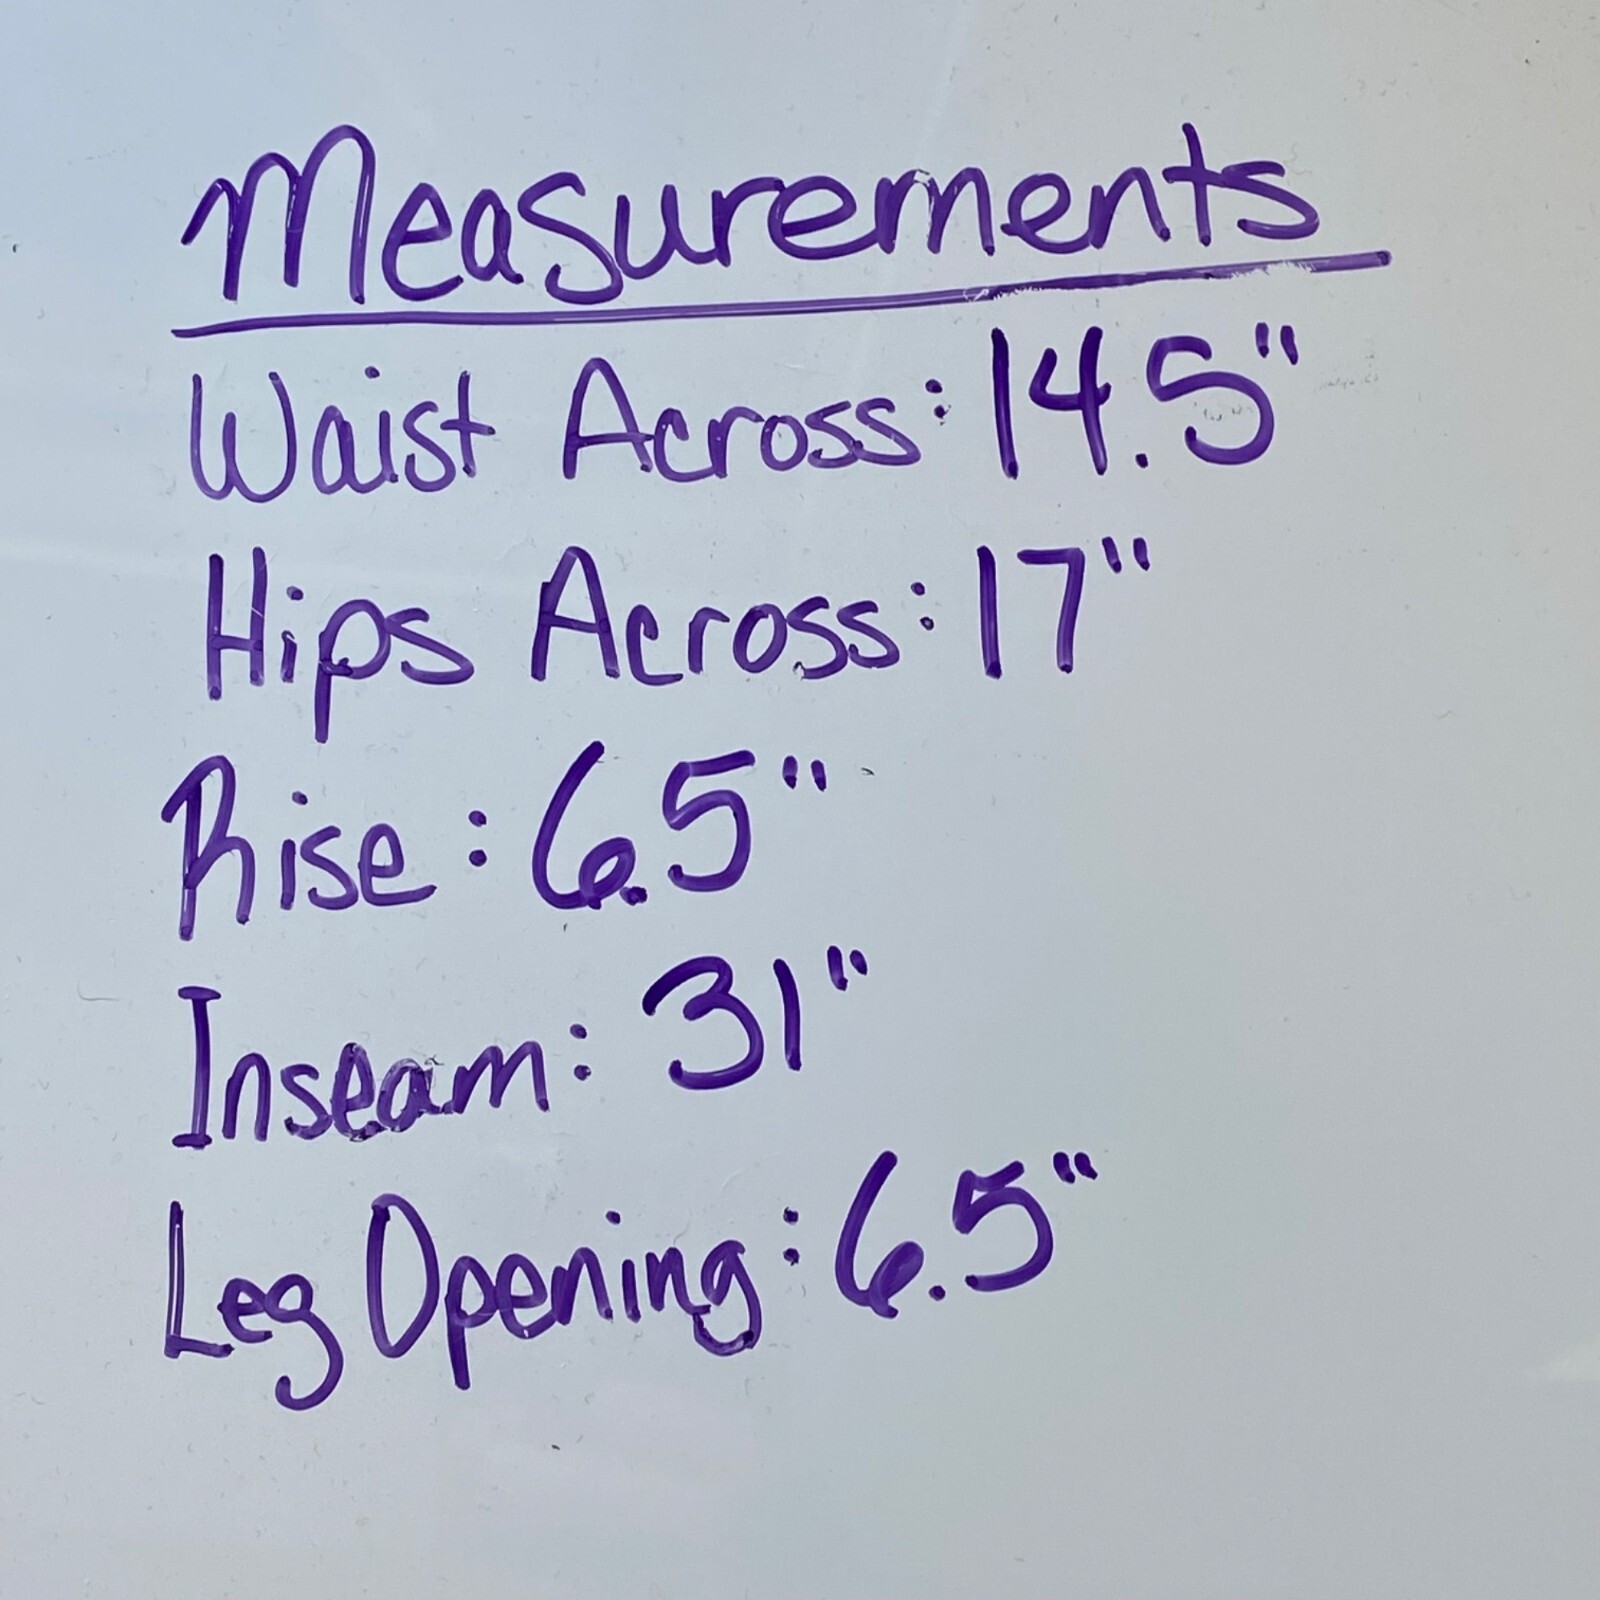 Measurements
Waist Across: 14.5"
Hips Across: 17"
Rise: 6.5"
Inseam: 31"
Leg Opening: 6.5"